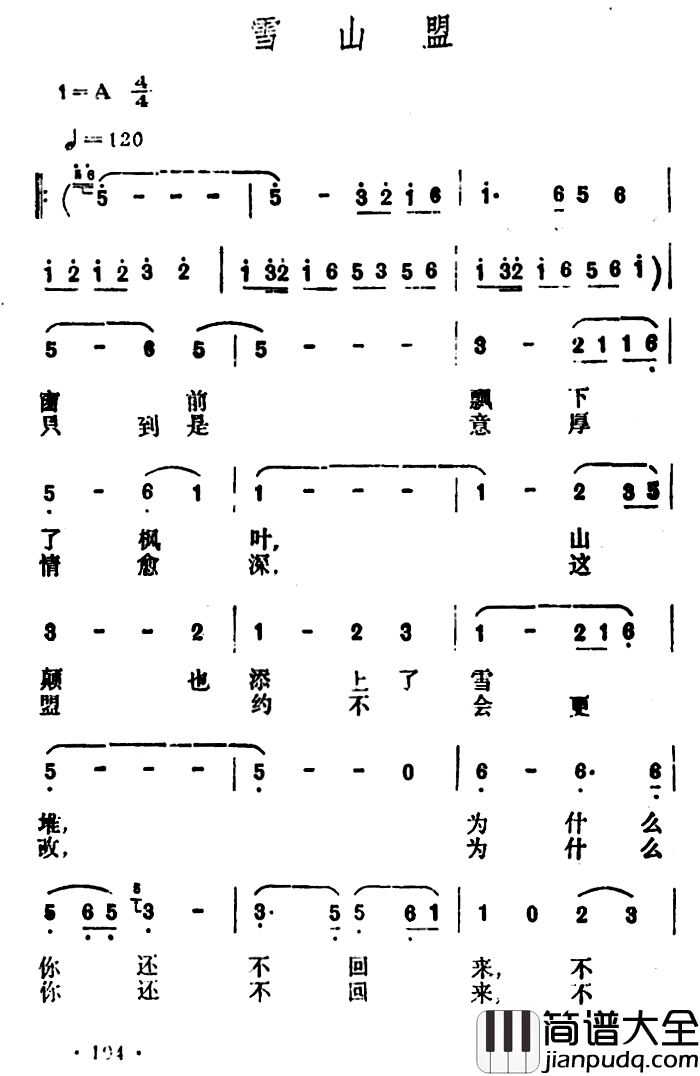 雪山盟
1=A 4/4
♩=120
‖: ( 5 6 5 - - - | 5 - 3 2 1 6 | 1· 6 5 6 |
1 2 1 2 3 2 | 1 32 1 6 5 3 5 6 | 1 32 1 6 5 6 1 ) |
5 - 6 5 | 5 - - - | 3 - 2 1 1 6 |
窗 前 飘 下
只 到 是 意 厚
5 - 6 1 | 1 - - - | 1 - 2 3 5 |
了 枫 叶, 山
情 愈 深, 这
3 - - 2 | 1 - 2 3 | 1 - 2 1 6 |
颠 也 添 上 了 雪
盟 约 不 会 更
5 - - - | 5 - - 0 | 6 - 6· 6 |
堆, 为 什 么
改, 为 什 么
5 6 5 5 3 - | 3· 5 5 6 1 | 1 0 2 3 |
你 还 不 回 来, 不
你 还 不 回 来, 不
·194·
简谱大全
jianpudq.com